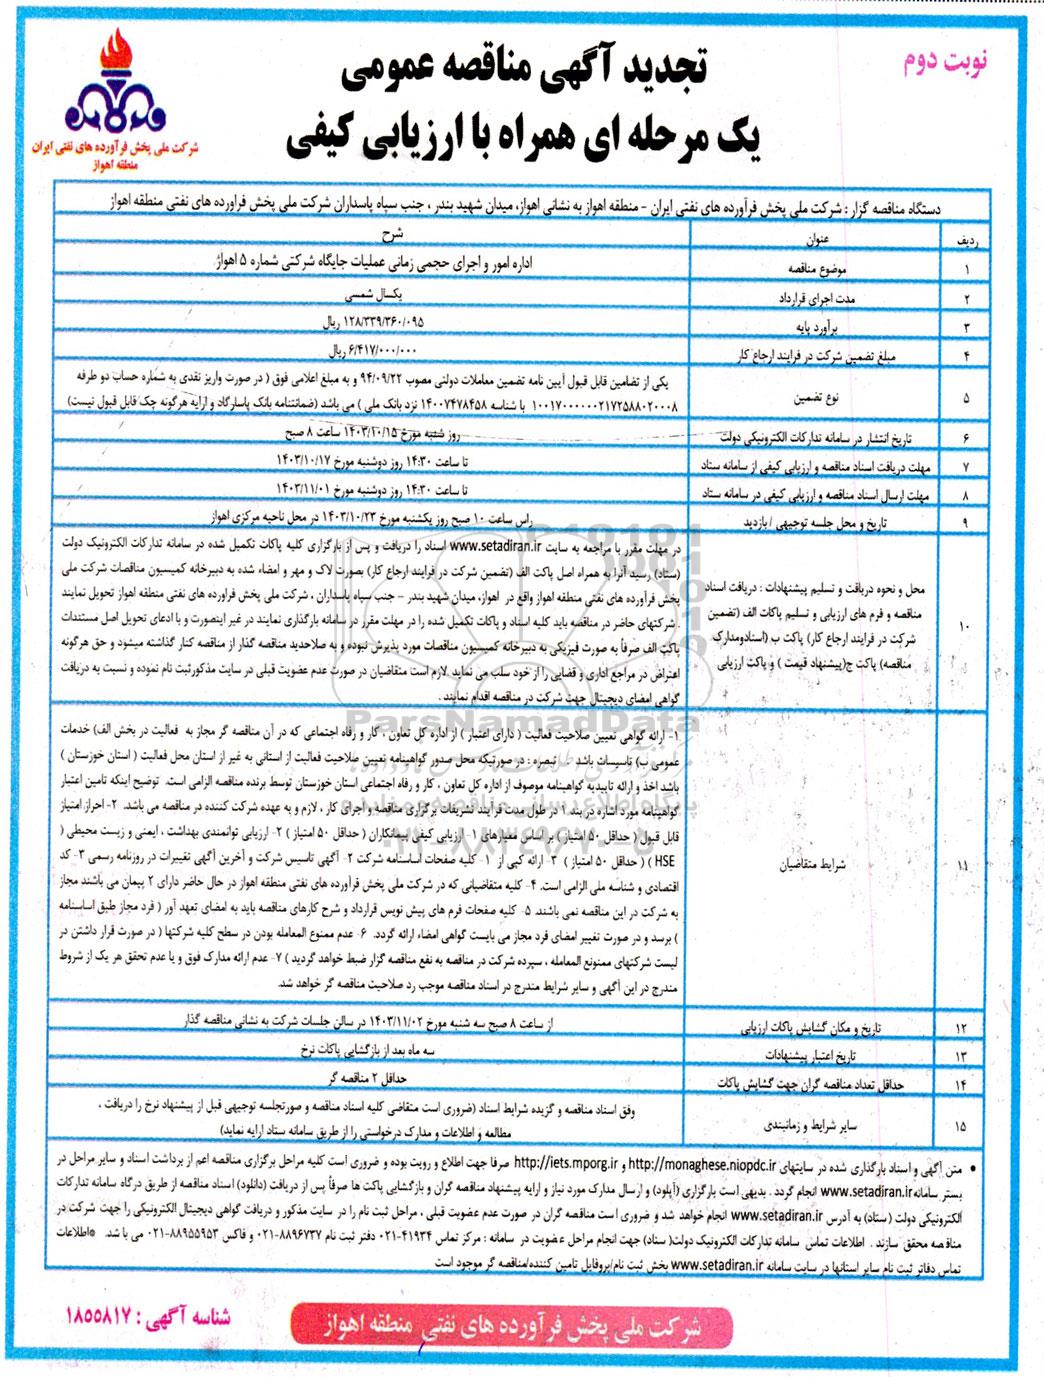 نوبت دوم
تجدید آگهی مناقصه عمومی
یک مرحله ای همراه با ارزیابی کیفی
شرکت ملی پخش فرآورده های نفتی ایران
منطقه اهواز
دستگاه مناقصه گزار : شرکت ملی پخش فرآورده های نفتی ایران - منطقه اهواز به نشانی اهواز، میدان شهید بندر ، جنب سپاه پاسداران شرکت ملی پخش فراورده های نفتی منطقه اهواز
ردیف عنوان شرح
۱ موضوع مناقصه اداره امور و اجرای حجمی زمانی عملیات جایگاه شرکتی شماره ۵ اهواز
۲ مدت اجرای قرارداد یکسال شمسی
۳ برآورد پایه ۱۲۸/۳۳۹/۳۶۰/۰۹۵ ریال
۴ مبلغ تضمین شرکت در فرایند ارجاع کار ۶/۴۱۷/۰۰۰/۰۰۰ ریال
۵ نوع تضمین یکی از تضامین قابل قبول آیین نامه تضمین معاملات دولتی مصوب ۹۴/۰۹/۲۲ و به مبلغ اعلامی فوق ( در صورت واریز نقدی به شماره حساب دو طرفه
۱۰۰۱۷۰۰۰۰۰۰۲۱۷۲۵۸۸۰۲۰۰۰۸ با شناسه ۱۴۰۰۷۴۷۸۴۵۸ نزد بانک ملی ) می باشد (ضمانتنامه بانک پاسارگاد و ارایه هرگونه چک قابل قبول نیست)
۶ تاریخ انتشار در سامانه تدارکات الکترونیکی دولت روز شنبه مورخ ۱۴۰۳/۱۰/۱۵ ساعت ۸ صبح
۷ مهلت دریافت اسناد مناقصه و ارزیابی کیفی از سامانه ستاد تا ساعت ۱۴:۳۰ روز دوشنبه مورخ ۱۴۰۳/۱۰/۱۷
۸ مهلت ارسال اسناد مناقصه و ارزیابی کیفی در سامانه ستاد تا ساعت ۱۴:۳۰ روز دوشنبه مورخ ۱۴۰۳/۱۱/۰۱
۹ تاریخ و محل جلسه توجیهی / بازدید راس ساعت ۱۰ صبح روز یکشنبه مورخ ۱۴۰۳/۱۰/۲۳ در محل ناحیه مرکزی اهواز
۱۰ محل و نحوه دریافت و تسلیم پیشنهادات : دریافت اسناد
مناقصه و فرم های ارزیابی و تسلیم پاکات الف (تضمین
شرکت در فرایند ارجاع کار) پاکت ب (اسنادومدارک
مناقصه) پاکت ج(پیشنهاد قیمت ) و پاکت ارزیابی
در مهلت مقرر با مراجعه به سایت www.setadiran.ir اسناد را دریافت و پس از بارگزاری کلیه پاکات تکمیل شده در سامانه تدارکات الکترونیک دولت
(ستاد) رسید آنرا به همراه اصل پاکت الف (تضمین شرکت در فرایند ارجاع کار) بصورت لاک و مهر و امضاء شده به دبیرخانه کمیسیون مناقصات شرکت ملی
پخش فرآورده های نفتی منطقه اهواز واقع در اهواز، میدان شهید بندر - جنب سپاه پاسداران ، شرکت ملی پخش فراورده های نفتی منطقه اهواز تحویل نمایند
. شرکتهای حاضر در مناقصه باید کلیه اسناد و پاکات تکمیل شده را در مهلت مقرر در سامانه بارگذاری نمایند در غیر اینصورت و با ادعای تحویل اصل مستندات
پاکت الف صرفاً به صورت فیزیکی به دبیرخانه کمیسیون مناقصات مورد پذیرش نبوده و به صلاحدید مناقصه گذار از مناقصه کنار گذاشته میشود و حق هرگونه
اعتراض در مراجع اداری و قضایی را از خود سلب می نماید. لازم است متقاضیان در صورت عدم عضویت قبلی در سایت مذکورثبت نام نموده و نسبت به دریافت
گواهی امضای دیجیتال جهت شرکت در مناقصه اقدام نمایند .
۱۱ شرایط متقاضیان
۱- ارائه گواهی تعیین صلاحیت فعالیت ( دارای اعتبار ) از اداره کل تعاون ، کار و رفاه اجتماعی که در آن مناقصه گر مجاز به فعالیت در بخش الف) خدمات
عمومی ب) تاسیسات باشد . تبصره : در صورتیکه محل صدور گواهینامه تعیین صلاحیت فعالیت از استانی به غیر از استان محل فعالیت ( استان خوزستان )
باشد اخذ و ارائه تاییدیه گواهینامه موصوف از اداره کل تعاون ، کار و رفاه اجتماعی استان خوزستان توسط برنده مناقصه الزامی است. توضیح اینکه تامین اعتبار
گواهینامه مورد اشاره در بند ۱ در طول مدت فرآیند تشریفات برگزاری مناقصه و اجرای کار ، لازم و به عهده شرکت کننده در مناقصه می باشد. ۲- احراز امتیاز
قابل قبول ( حداقل ۵۰ امتیاز ) بر اساس معیارهای ۱- ارزیابی کیفی پیمانکاران ( حداقل ۵۰ امتیاز ) ۲- ارزیابی توانمندی بهداشت ، ایمنی و زیست محیطی (
HSE ) ( حداقل ۵۰ امتیاز ) ۳- ارائه کپی از ۱- کلیه صفحات اساسنامه شرکت ۲- آگهی تاسیس شرکت و آخرین آگهی تغییرات در روزنامه رسمی ۳- کد
اقتصادی و شناسه ملی الزامی است. ۴- کلیه متقاضیانی که در شرکت ملی پخش فرآورده های نفتی منطقه اهواز در حال حاضر دارای ۲ پیمان می باشند مجاز
به شرکت در این مناقصه نمی باشند. ۵- کلیه صفحات فرم های پیش نویس قرارداد و شرح کارهای مناقصه باید به امضای تعهد آور ( فرد مجاز طبق اساسنامه
) برسد و در صورت تغییر امضای فرد مجاز می بایست گواهی امضاء ارائه گردد. ۶- عدم ممنوع المعامله بودن در سطح کلیه شرکتها ( در صورت قرار داشتن در
لیست شرکتهای ممنونع المعامله ، سپرده شرکت در مناقصه به نفع مناقصه گزار ضبط خواهد گردید ) ۷- عدم ارائه مدارک فوق و یا عدم تحقق هر یک از شروط
مندرج در این آگهی و سایر شرایط مندرج در اسناد مناقصه موجب رد صلاحیت مناقصه گر خواهد شد.
۱۲ تاریخ و مکان گشایش پاکات ارزیابی از ساعت ۸ صبح سه شنبه مورخ ۱۴۰۳/۱۱/۰۲ در سالن جلسات شرکت به نشانی مناقصه گذار
۱۳ تاریخ اعتبار پیشنهادات سه ماه بعد از بازگشایی پاکات نرخ
۱۴ حداقل تعداد مناقصه گران جهت گشایش پاکات حداقل ۲ مناقصه گر
۱۵ سایر شرایط و زمانبندی وفق اسناد مناقصه و گزیده شرایط اسناد (ضروری است متقاضی کلیه اسناد مناقصه و صورتجلسه توجیهی قبل از پیشنهاد نرخ را دریافت ،
مطالعه و اطلاعات و مدارک درخواستی را از طریق سامانه ستاد ارایه نماید)
• متن آگهی و اسناد بارگذاری شده در سایتهای http://monaghese.niopdc.ir و http://iets.mporg.ir صرفا جهت اطلاع و رویت بوده و ضروری است کلیه مراحل برگزاری مناقصه اعم از برداشت اسناد و سایر مراحل در
بستر سامانه www.setadiran.ir انجام گردد . بدیهی است بارگزاری (آپلود) و ارسال مدارک مورد نیاز و ارایه پیشنهاد مناقصه گران و بازگشایی پاکت ها صرفاً پس از دریافت (دانلود) اسناد مناقصه از طریق درگاه سامانه تدارکات
الکترونیکی دولت (ستاد) به آدرس www.setadiran.ir انجام خواهد شد و ضروری است مناقصه گران در صورت عدم عضویت قبلی ، مراحل ثبت نام را در سایت مذکور و دریافت گواهی دیجیتال الکترونیکی را جهت شرکت در
مناقصه محقق سازند . اطلاعات تماس سامانه تدارکات الکترونیک دولت( ستاد) جهت انجام مراحل عضویت در سامانه : مرکز تماس ۴۱۹۳۴-۰۲۱ دفتر ثبت نام ۸۸۹۶۷۳۷-۰۲۱ و فاکس ۸۸۹۵۵۹۵۳-۰۲۱ می باشد. *اطلاعات
تماس دفاتر ثبت نام سایر استانها در سایت سامانه www.setadiran.ir بخش ثبت نام/پروفایل تامین کننده/مناقصه گر موجود است
شرکت ملی پخش فرآورده های نفتی منطقه اهواز
شناسه آگهی : ۱۸۵۵۸۱۷
ParsNamadData